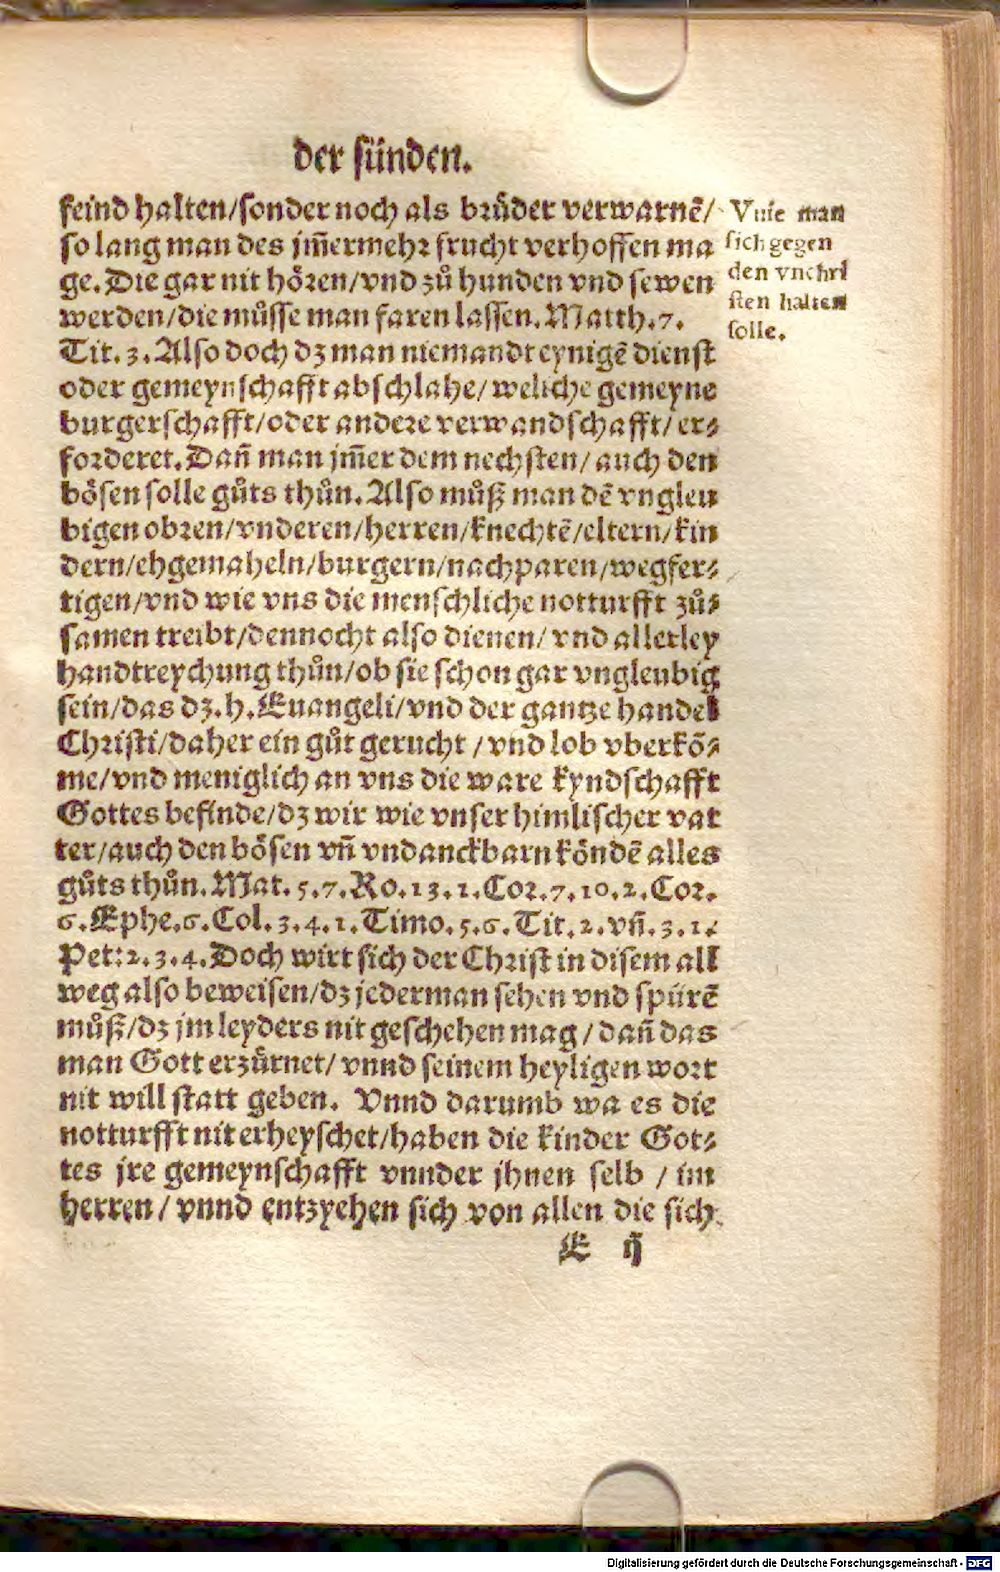 der sünden.
feind halten/sonder noch als brůder verwarnẽ/
so lang man des jm̃ermehr frucht verhoffen ma
ge. Die gar nit hören/vnd zů hunden vnd sewen
werden/die můsse man faren lassen. Matth. 7.
Tit. 3. Also doch dz man niemandt eynigẽ dienst
oder gemeynschafft abschlahe/ weliche gemeyne
burgerschafft/oder andere verwandschafft/ er⸗
forderet. Dañ man jm̃er dem nechsten/ auch den
bösen solle gůts thůn. Also můß man dẽ vngleu
bigen obren/vnderen/herren/knechtẽ/eltern/kin
dern/ehgemaheln/burgern/nachparen/wegfer⸗
tigen/vnd wie vns die menschliche notturfft zů⸗
samen treibt/dennocht also dienen/ vnd allerley
handtreychung thůn/ob sie schon gar vngleubig
sein/das dz. h. Euangeli/vnd der gantze handel
Christi/daher ein gůt gerucht / vnd lob vberkõ⸗
me/vnd meniglich an vns die ware kyndschafft
Gottes befinde/dz wir wie vnser himlischer vat
ter/auch den bösen vñ vndanckbarn köndẽ alles
gůts thůn. Mat. 5. 7. Ro. 13. 1. Cor. 7. 10. 2. Cor.
6. Ephe. 6. Col. 3. 4. 1. Timo. 5. 6. Tit. 2. vñ. 3. 1.
Pet: 2. 3. 4. Doch wirt sich der Christ in disem all
weg also beweisen/dz jederman sehen vnd spürẽ
můß/dz jm leyders nit geschehen mag / dañ das
man Gott erzürnet/ vnnd seinem heyligen wort
nit will statt geben. Vnnd darumb wa es die
notturfft nit erheyschet/haben die kinder Got⸗
tes jre gemeynschafft vnnder jhnen selb / im
herren/ vnnd entzyehen sich von allen die sich
E ij
Vuie man
sich gegen
den vnchri
sten halten
solle.
Digitalisierung gefördert durch die Deutsche Forschungsgemeinschaft - DFG